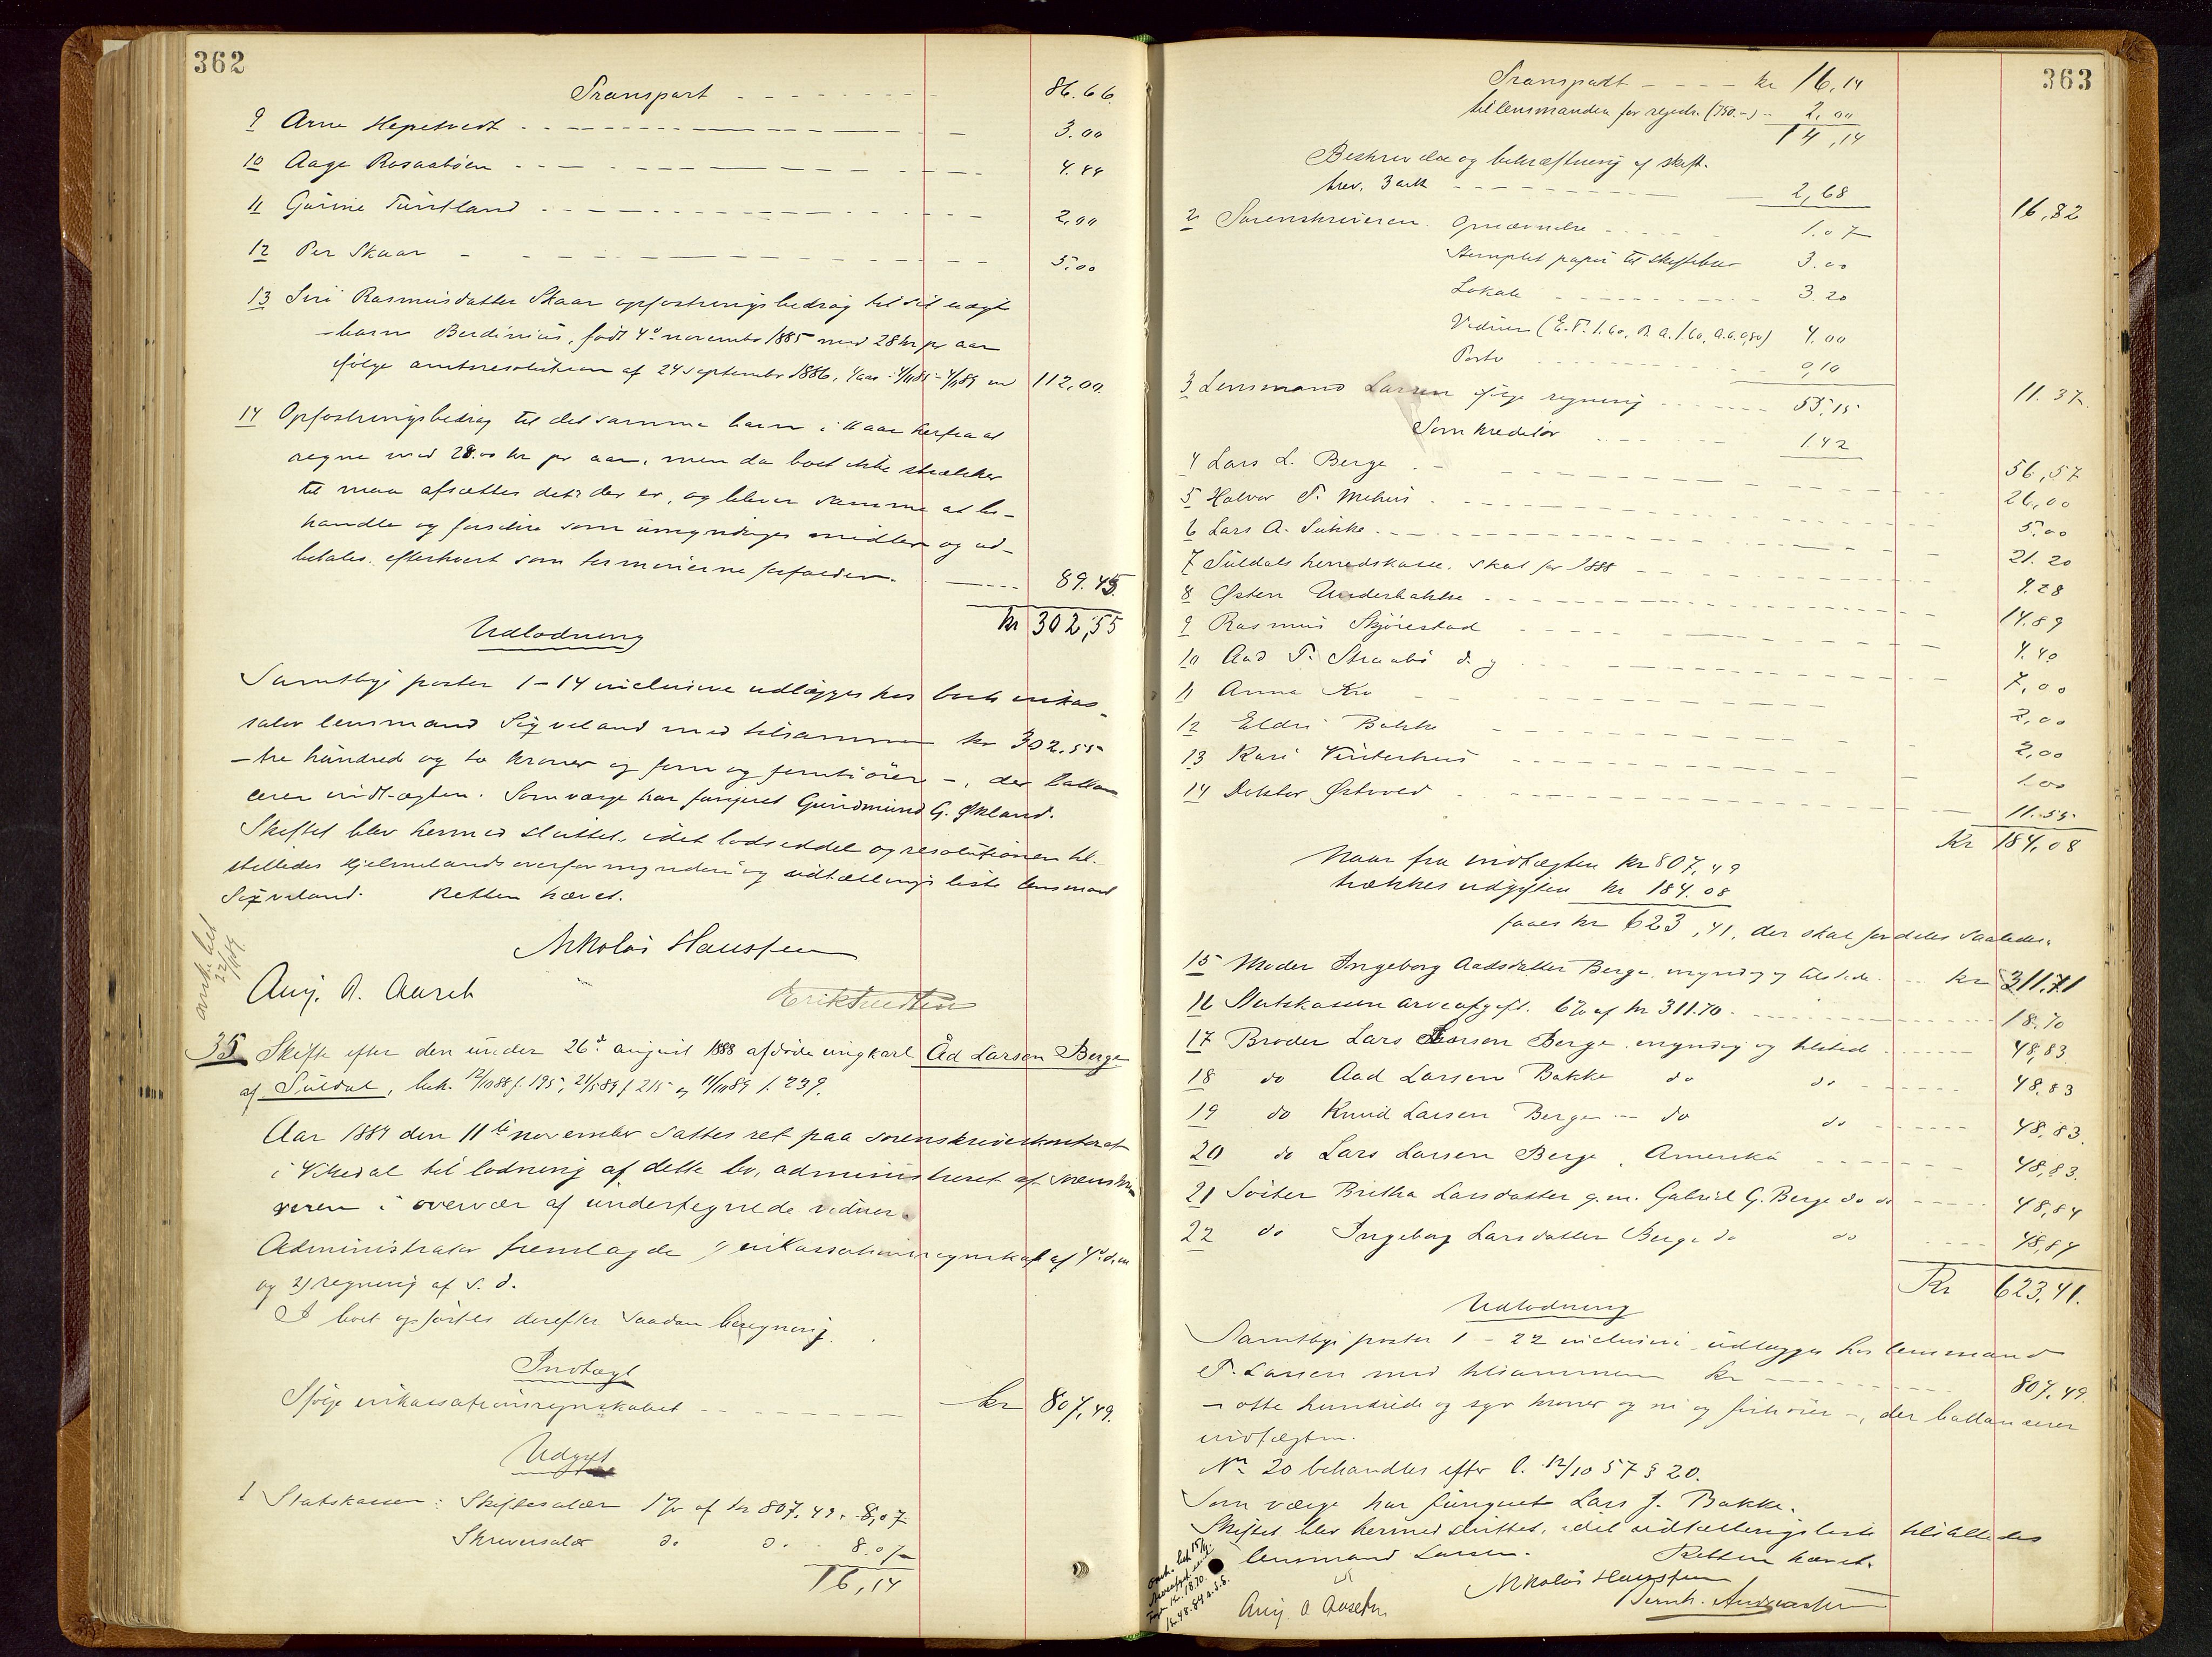 362
Transport - - - - - - - - 86.66.
9 Arne Hepetvedt - - - - - 3.00
10 Aage Rosaabøen - - - - - 4.44
11 Gurine Tuntland - - - - - 2,00
12 Per Skaar - - - - - 5,00
13 Siri Rasmusdatter Skaar opfostringsbedrag til sit uægte
barn Berdinius, født 4de november 1885 med 28 kr pr aar
ifølge amtsresolution af 24 september 1886, 4 aar 4/11 85 - 4/11 89 112,00.
14 Opfostringsbedrag til det samme barn i 11 aar herfra at
regne med 28.00 kr pr aar, men da boet ikke strækker
til maa afsættes det der er, og bliver samme at be-
handle og forsikre som umyndiges midler og ud-
betales efterhvert som terminerne forfalder. - - - 89.45.
kr 302,55
Udlodning
Samtlige poster 1-14 inclusive udlægges hos boets inkas-
sator lensmand Sigveland med tilsammen kr 302.55
- tre hundrede og to kroner og fem og femti ører -, der ballan-
cerer indtægten. Som værge har fungeret Gudmund G. Økland.
Skiftet blev hermed sluttet, idet lodseddel og resolutionen til-
stilledes Hjelmelands overformynderi og udtællingsliste lensmand
Sigveland. Retten hævet.
Nikolai Haussen
Aug. A. Aarek
Erik Knudsen
35 Skifte efter den under 26de august 1888 afdøde ungkarl Aad Larsen Berge
af Suldal, beh. 12/10 88 f. 195, 21/5 89 f 215 og 11/10 89 f. 239.
Aar 1889 den 11te november sattes ret paa sorenskriverkontoret
i Vikedal til lodning af dette bo, administreret af sorenskri-
veren i overvær af undertegnede vidner.
Administrator fremlagde 1) inkassationsregnskab af 4de dm
og 2) regning af s. d.
I boet opførtes derefter saadan beregning.
Indtægt
Ifølge inkassationsregnskabet - - - - - kr 807,49.
Udgift
1 Statskassen: Skiftesalær 1% af kr 807,49. 8,07
Skriversalær do do 8.07
16,14
363
Transport - - - - kr 16,14
til lensmanden for regnsk. (750.-) - 2,00
14,14
Beskrivelse og bekræftning af skift-
brev. 3 ark - - - - - 2,68
16,82
2 Sorenskriveren. Opnævnelse - - - 1.07
Stemplet papir til skiftebrev 3.00
Lokale - - - - - 3.20
Vidner (E.T. 1.60, B.A. 1.60, A.A. 0,80) 4,00
Porto - - - - - 0,10
11.37.
3 Lensmand Larsen ifølge regning - - - - 55,15
Som kreditor - - - - 1.42
56,57
4 Lars L. Berge - - - - - 26,00
5 Halvor T. Mehus - - - - - 5,00
6 Lars A. Sukke - - - - - 21.20
7 Suldals herredskasse, skat for 1888 - - - 4.28
8 Østen Underbakke - - - - - 14.89
9 Rasmus Skjørestad - - - - - 4.40
10 Aad T. Straabø d. y - - - - - 7,00
11 Anna Kro - - - - - 2,00
12 Eldri Bakke - - - - - 2,00
13 Kari Vinterhus - - - - - 1.00
14 Doktor Østved - - - - - 11.55
Kr 184,08
Naar fra indtægten kr 807,49
trækkes udgiften kr 184.08
faaes kr 623,41, der skal fordeles saaledes.
15 Moder Ingeborg Aadsdatter Berge, myndig og tilstede - - kr 311.71
16 Statskassen arveafgift. 6% af kr 311.70. - - - 18.70
17 Broder Lars Larsen Berge, myndig og tilstede - - - 48,83.
18 do Aad Larsen Bakke do do - - - 48.83
19 do Knud Larsen Berge - do do - - - 48,83.
20 do Lars Larsen Berge, Amerika - - - - - 48,83.
21 Søster Britha Larsdatter g. m. Gabriel G. Berge do do - - - 48,84
22 do Ingeborg Larsdatter Berge do do - - - 48,84
Kr 623,41.
Udlodning
Samtlige poster 1-22 inclusive udlægges hos lensmand
T. Larsen med tilsammen kr - - - - - 807.49.
- otte hundrede og syv kroner og ni og firti ører -, der ballancerer
indtægten.
No 20 behandles efter l. 12/10 57 § 20.
Som værge har fungeret Lars J. Bakke.
Skiftet blev hermed sluttet, idet udtællingsliste tilstilledes
lensmand Larsen. Retten hævet.
Nikolai Haussen
Aug. A Aarek
Bernh. Andreassen